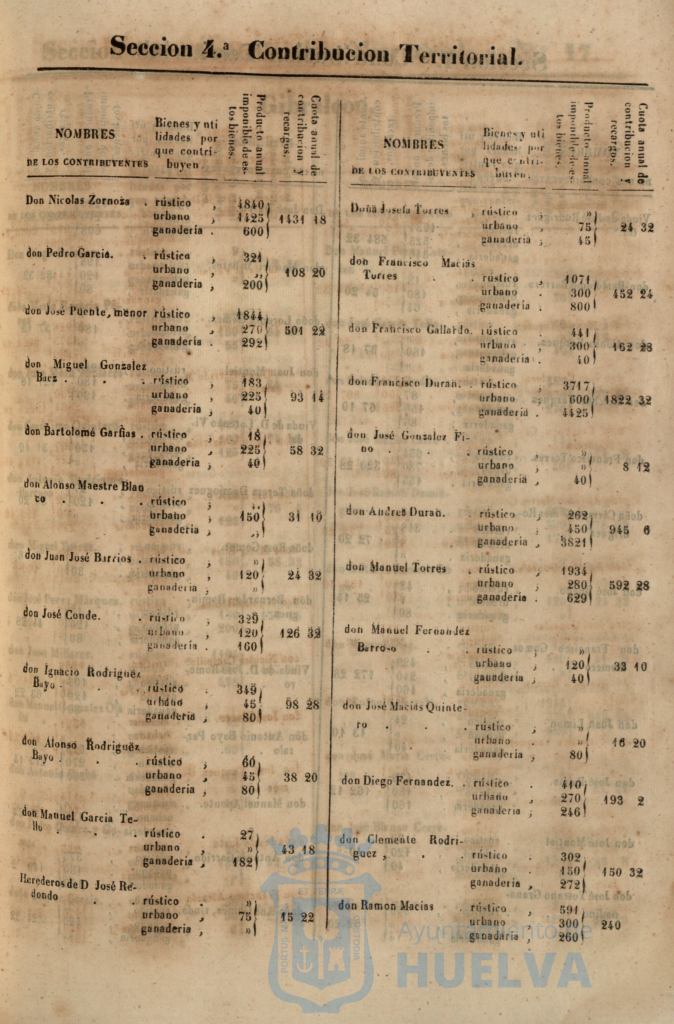 Seccion 4.ª Contribucion Territorial.
NOMBRES
DE LOS CONTRIBUYENTES
Bienes y uti
lidades por
que contri-
buyen.
Producto anual
imponible de es-
tos bienes.
Cuota anual de
contribucion y
recargos.
Don Nicolas Zornoza . rústico , 4840
urbano , 1425 1431 18
ganaderia . 600
don Pedro Garcia. . rústico , 321
urbano , ,, 108 20
ganaderia , 200
don José Puente, menor rústico , 1844
urbano , 270 501 22
ganaderia . 292
don Miguel Gonzalez
Baez . . . rústico , 183
urbano , 225 93 14
ganaderia , 40
don Bartolomé Garfias . rústico , 18
urbano , 225 58 32
ganaderia , 40
don Alonso Maestre Blan
co . . . rústico , ,,
urbano , 150 31 10
ganaderia , ,,
don Juan José Barrios . rústico , »
urbano , 120 24 32
ganaderia , »
don José Conde. . rústico , 329
urbano , 120 126 32
ganaderia . 160
don Ignacio Rodriguez
Bayo . . . rústico , 349
urbano , 45 98 28
ganaderia , 80
don Alonso Rodriguez
Bayo . . . rústico , 60
urbano , 45 38 20
ganaderia , 80
don Manuel Garcia Te-
llo . . . rústico . 27
urbano , » 43 18
ganaderia , 182
Herederos de D José Re-
dondo . . rústico , »
urbano , 75 15 22
ganaderia , »
NOMBRES
DE LOS CONTRIBUYENTES
Bienes y uti
lidades por
que contri-
buyen.
Producto anual
imponible de es-
tos bienes.
Cuota anual de
contribucion y
recargos.
Doña Josefa Torres , rústico , »
urbano , 75 24 32
ganaderia ; 45
don Francisco Macias
Torres . . rústico , 1071
urbano . 300 452 24
ganaderia . 800
don Francisco Gallardo. rústico , 441
urbano , 300 162 28
ganaderia . 40
don Francisco Duran. . rústico , 3717
urbano , 600 1822 32
ganaderia . 4425
don José Gonzalez Fi-
no . . . rústico , »
urbano , » 8 12
ganaderia , 40
don Andres Duran. . rústico , 262
urbano , 450 945 6
ganaderia , 3821
don Manuel Torres . rústico , 1934
urbano , 280 592 28
ganaderia . 629
don Manuel Fernandez
Barroso . . rústico , »
urbano , 120 33 10
ganaderia , 40
don José Macias Quinte-
ro . . . rústico , »
urbano . » 16 20
ganaderia , 80
don Diego Fernandez. . rústico , 410
urbano , 270 193 2
ganaderia , 246
don Clemente Rodri-
guez , . . rústico , 302
urbano , 150 150 32
ganaderia , 272
don Ramon Macias . rústico , 591
urbano . 300 240
ganadaria , 260
Ayuntamiento de
HUELVA